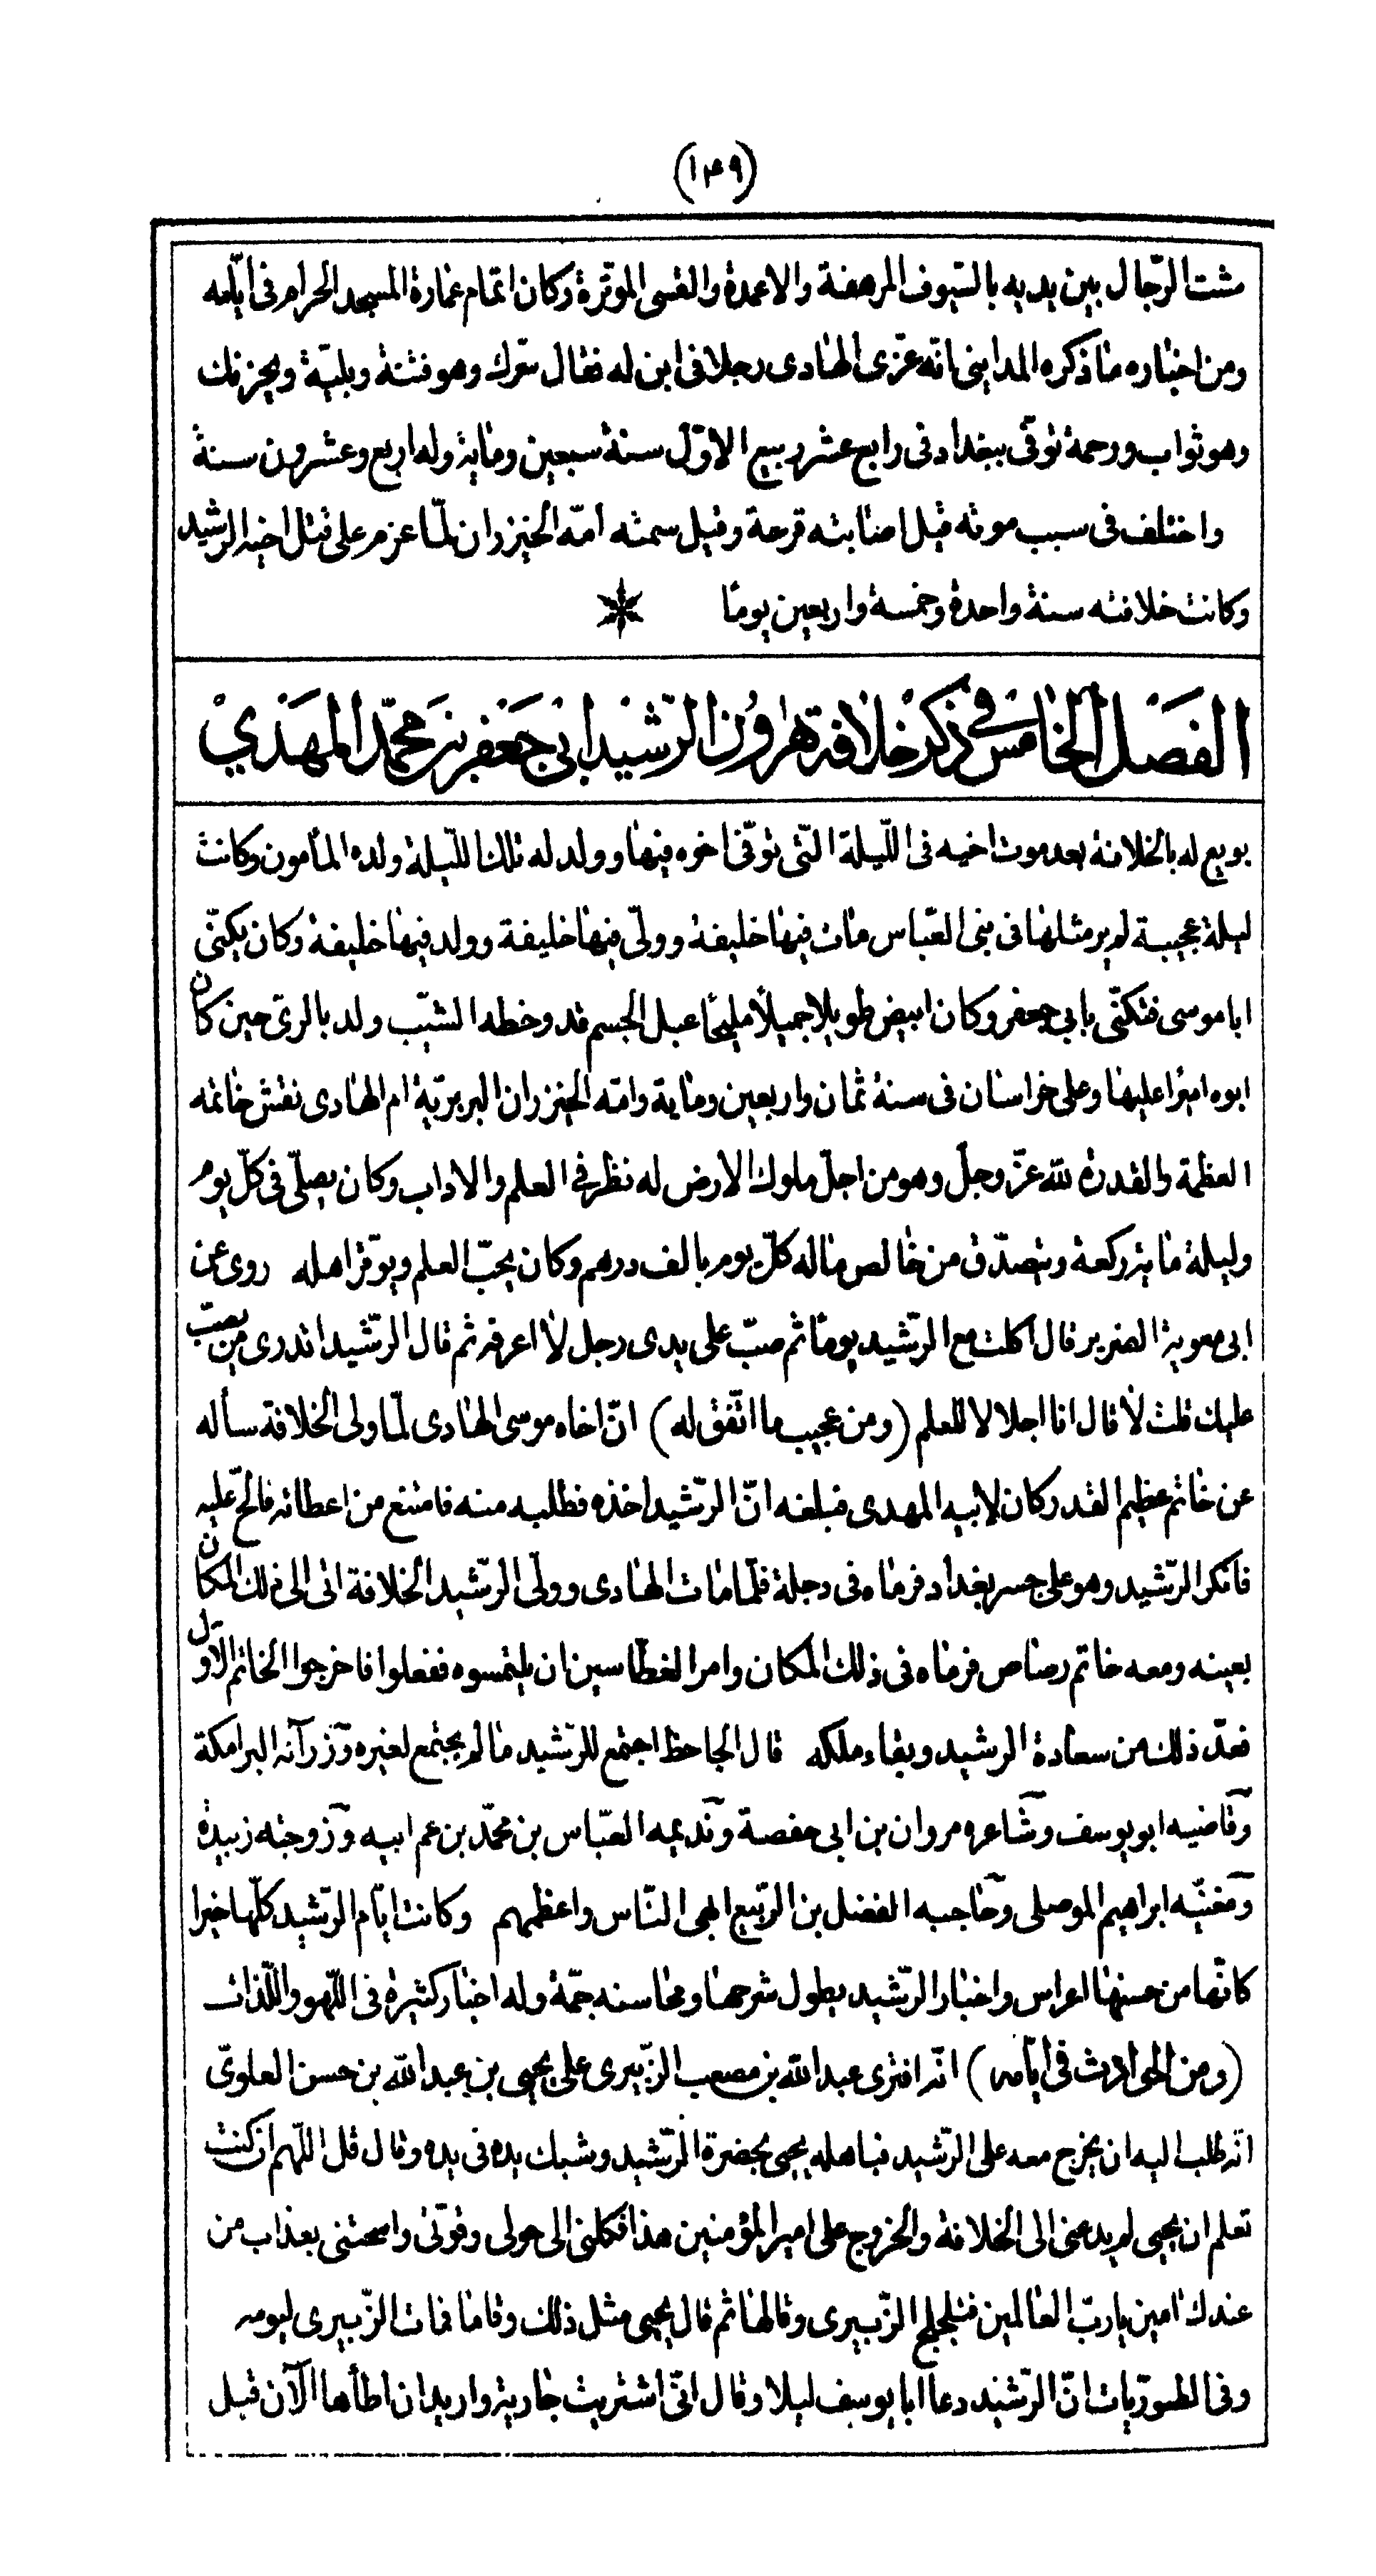 (١٤٩)
مشت الرّجال بين يديه بالسّيوف المرهفة والاعمدة والقسى الموتّرة وكان اتمام عمارة المسجد الحرام فى ايّامه
ومن اخباره ما ذكره المداينى انّه عزّى الهادى رجلا فى ابن له فقال سرّك وهو فتنة وبليّة ويحزنك
وهو ثواب ورحمة توفّى ببغداد فى رابع عشر ربيع الاوّل سنة سبعين وماية وله اربع وعشرون سنة
واختلف فى سبب موته قيل اصابته قرحة وقيل سمته امّه الخيزران لمّا عزم على قتل اخيه الرشيد
وكانت خلافته سنة واحدة وخمسة واربعين يومًا
الفصل الخامس في ذكر خلافة هرون الرّشيد ابي جعفر بن محمّد المهدي
بويع له بالخلافة بعد موت اخيه فى اللّيلة الّتى توفّى اخوه فيها وولد له تلك اللّيلة ولده المأمون وكانت
ليلة عجيبة لم ير مثلها فى بنى العبّاس مات فيها خليفة وولّى فيها خليفة وولد فيها خليفة وكان يكنّى
ابا موسى فتكنّى بابي جعفر وكان ابيض طويلا جميلًا مليحًا عبل الجسم قد وخطه الشيّب ولد بالرىّ حين كان
ابوه اميرا عليها وعلى خراسان فى سنة ثمان واربعين وماية وامّه الخيزران البربريّة ام الهادى نقش خاتمه
العظمة والقدرة لله عزّ وجلّ وهو من اجلّ ملوك الارض له نظر في العلم والاداب وكان يصلّى فى كلّ يوم
وليلة ماية ركعة ويتصدّق من خالص ماله كلّ يوم بالف درهم وكان يحبّ العلم ويوقّر اهله روى عن
ابى معوية الضرير قال اكلت مع الرّشيد يومًا ثم صبّ على يدى رجل لا اعرفه ثم قال الرّشيد اتدرى من يصبّ
عليك قلت لا قال انا اجلالا للعلم (ومن عجيب ما اتّفق له) انّ اخاه موسى الهادى لمّا ولى الخلافة سأله
عن خاتم عظيم القدر كان لابيه المهدى فبلغه انّ الرّشيد اخذه فطلبه منه فامتنع من اعطائه فالحّ عليه
فانكر الرّشيد وهو على جسر بغداد فرماه فى دجلة فلمّا مات الهادى وولّى الرّشيد الخلافة اتى الى ذلك المكان
بعينه ومعه خاتم رصاص فرماه فى ذلك المكان وامر الغطّاسين ان يلتمسوه ففعلوا فاخرجوا الخاتم الاوّل
فعدّ ذلك من سعادة الرشيد وبقاء ملكه قال الجاحظ اجتمع للرّشيد ما لم يجتمع لغيره وزرآئه البرامكة
وقاضيه ابو يوسف وشاعره مروان بن ابى حفصة ونديمه العبّاس بن محمّد بن عم ابيه وزوجته زبيدة
ومغنّيه ابراهيم الموصلى وحاجبه الفضل بن الرّبيع ابهى النّاس واعظمهم وكانت ايّام الرّشيد كلّها خيرا
كانّها من حسنها اعراس واخبار الرّشيد يطول شرحها ومحاسنه جمّة وله اخبار كثيرة فى اللّهو واللّذات
(ومن الحوادث فى ايّامه) انّه افترى عبد الله بن مصعب الزّبيرى على يحيى بن عبد الله بن حسن العلوىّ
انّه طلب اليه ان يخرج معه على الرّشيد فباهله يحيى بحضرة الرّشيد وشبك يده فى يده وقال قل اللّهم ان كنت
تعلم ان يحيى لم يدعنى الى الخلافة والخروج على امير المؤمنين هذا فكلنى الى حولى وقوّتى واسحتنى بعذاب من
عندك امين يا ربّ العالمين فتلجلج الزّبيرى وقالها ثم قال يحيى مثل ذلك وقاما فمات الزّبيرى ليومه
وفى الطيوريّات انّ الرّشيد دعا ابا يوسف ليلا وقال انّى اشتريت جارية واريد ان اطأها الآن قبل